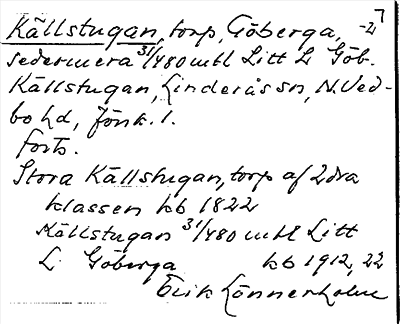 Källstugan, torp, Göberga, -27
sedermera 31/480 mtl Litt L Göb.
Källstugan, Linderås sn, N. Ved-
bo hd, Jönk. l.
forts.
Stora Källstugan, torp af 2dra
klassen kb 1822
Källstugan 31/480 mtl Litt
L Göberga kb 1912, 22
Erik Lönnerholm